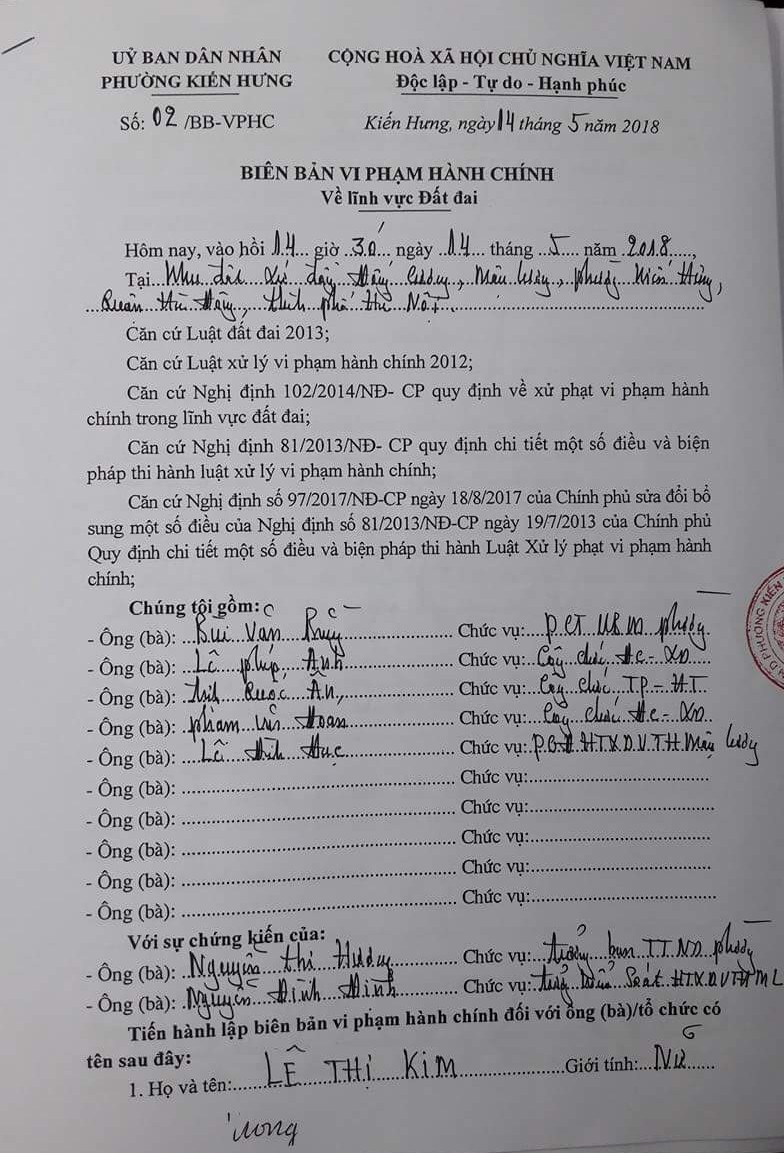 UỶ BAN DÂN NHÂN
PHƯỜNG KIẾN HƯNG
CỘNG HOÀ XÃ HỘI CHỦ NGHĨA VIỆT NAM
Độc lập - Tự do - Hạnh phúc
Số: 02 /BB-VPHC
Kiến Hưng, ngày 14 tháng 5 năm 2018
BIÊN BẢN VI PHẠM HÀNH CHÍNH
Về lĩnh vực Đất đai
Hôm nay, vào hồi 14 giờ 30 ngày 14 tháng 5 năm 2018,
Tại Mậu Lương, phường Kiến Hưng,
Quận Hà Đông, thành phố Hà Nội
Căn cứ Luật đất đai 2013;
Căn cứ Luật xử lý vi phạm hành chính 2012;
Căn cứ Nghị định 102/2014/NĐ- CP quy định về xử phạt vi phạm hành
chính trong lĩnh vực đất đai;
Căn cứ Nghị định 81/2013/NĐ- CP quy định chi tiết một số điều và biện
pháp thi hành luật xử lý vi phạm hành chính;
Căn cứ Nghị định số 97/2017/NĐ-CP ngày 18/8/2017 của Chính phủ sửa đổi bổ
sung một số điều của Nghị định số 81/2013/NĐ-CP ngày 19/7/2013 của Chính phủ
Quy định chi tiết một số điều và biện pháp thi hành Luật Xử lý phạt vi phạm hành
chính;
Chúng tôi gồm:
- Ông (bà): Bùi Văn Chức vụ: PCT UBND phường
- Ông (bà): Lê Anh Chức vụ: Công chức ĐC-XD
- Ông (bà): Quốc Ân Chức vụ: Công chức TP-HT
- Ông (bà): Phạm Văn Hoan Chức vụ: Công chức ĐC-XD
- Ông (bà): Lê Đình Chức vụ: PGĐ HTXDVTH Mậu Lương
- Ông (bà): Chức vụ:
- Ông (bà): Chức vụ:
- Ông (bà): Chức vụ:
- Ông (bà): Chức vụ:
- Ông (bà): Chức vụ:
Với sự chứng kiến của:
- Ông (bà): Nguyễn Thị Hương Chức vụ: trưởng ban TTND phường
- Ông (bà): Nguyễn Đình Chức vụ: Soát HTXDVTH ML
Tiến hành lập biên bản vi phạm hành chính đối với ông (bà)/tổ chức có
tên sau đây:
1. Họ và tên: LÊ THỊ KIM Giới tính: Nữ